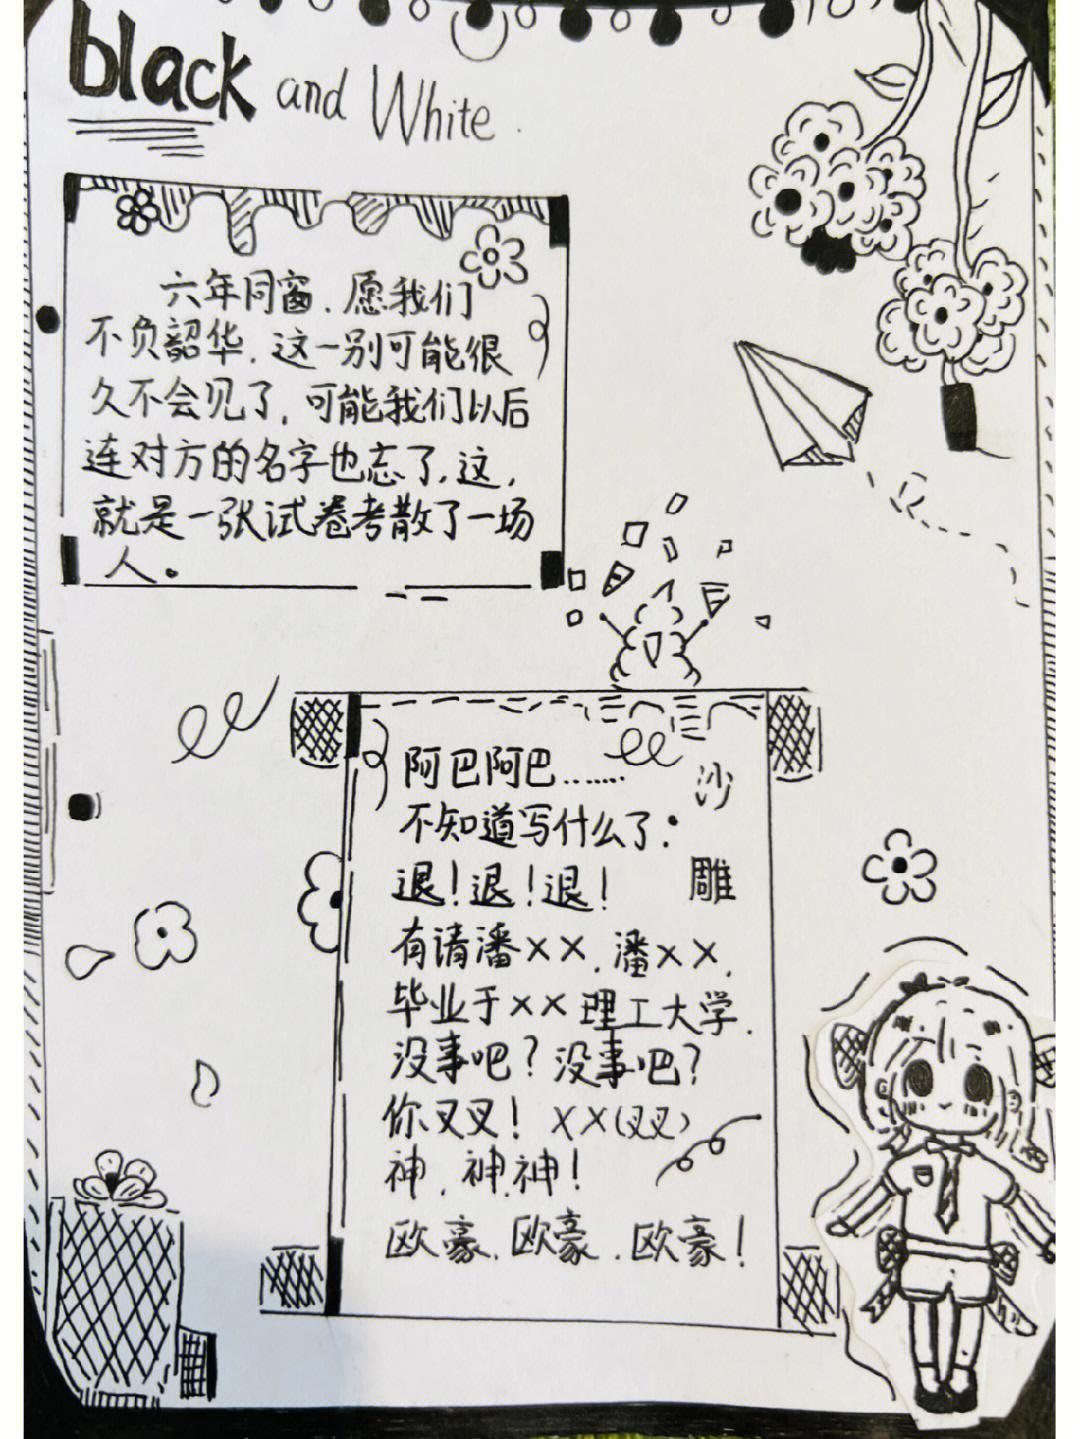 black and White
六年同窗.愿我们
不负韶华.这一别可能很
久不会见了,可能我们以后
连对方的名字也忘了.这,
就是一张试卷考散了一场
人。
阿巴阿巴.......
不知道写什么了.
沙
雕
退!退!退!
有请潘××.潘××,
毕业于××理工大学.
没事吧?没事吧?
你叉叉!××(叉叉)
神.神.神!
欧豪.欧豪.欧豪!